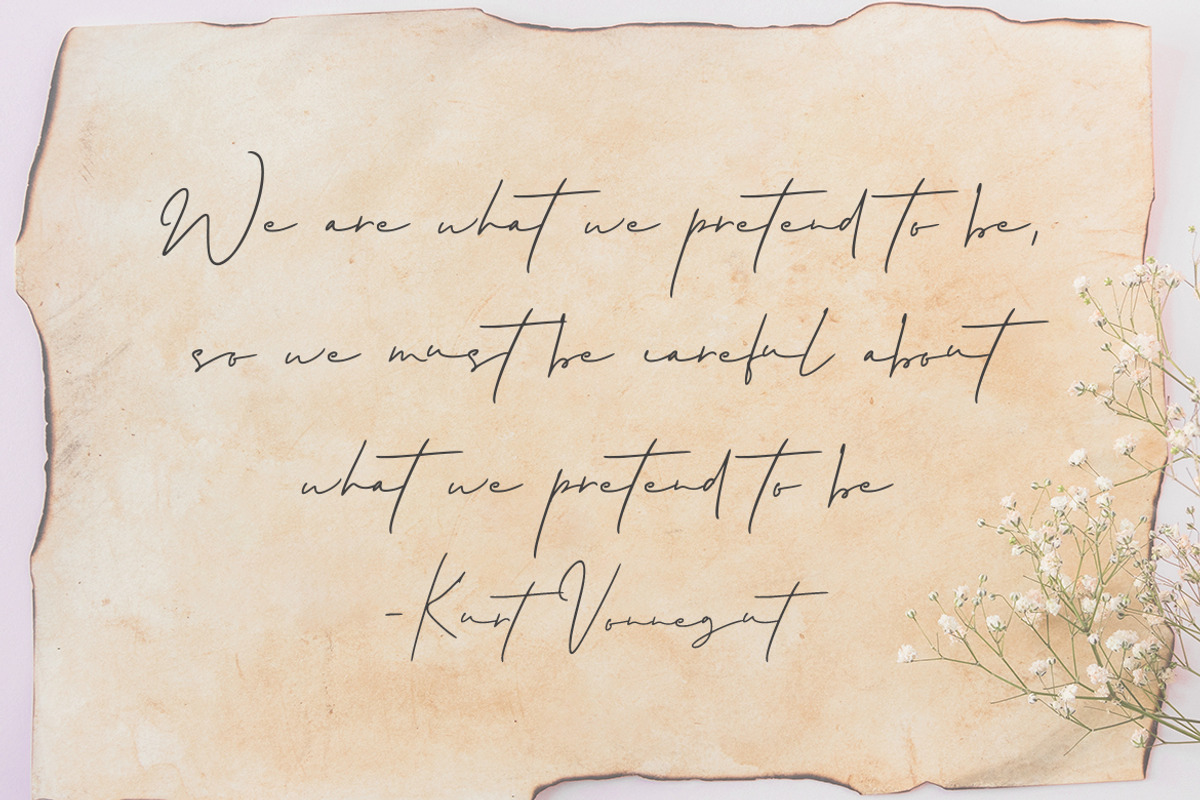 We are what we pretend to be,
so we must be careful about
what we pretend to be
-Kurt Vonnegut